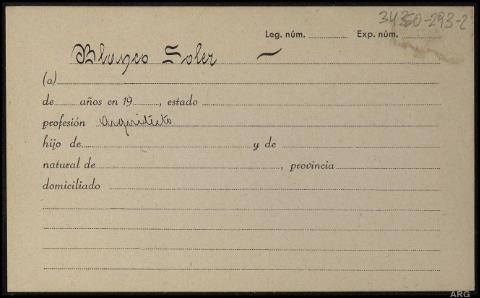 34350-293-2
Leg. núm. Exp. núm.
Blanco Soler
(a)
de años en 19 , estado
profesión Arquitecto
hijo de y de
natural de , provincia
domiciliado
ARG